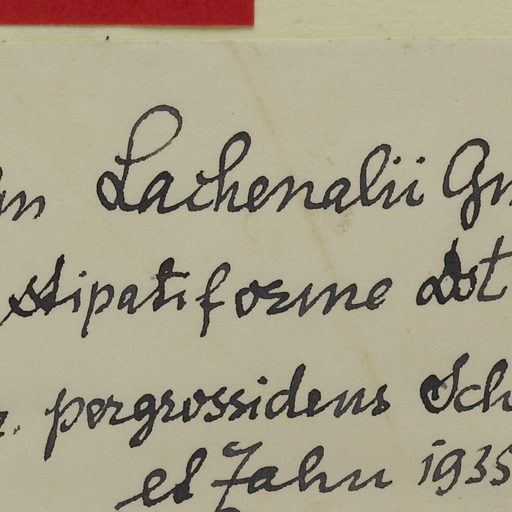 Lachenalii Gm
stipatiforme Dst
pergrossidens Sch
et Zahn 1935